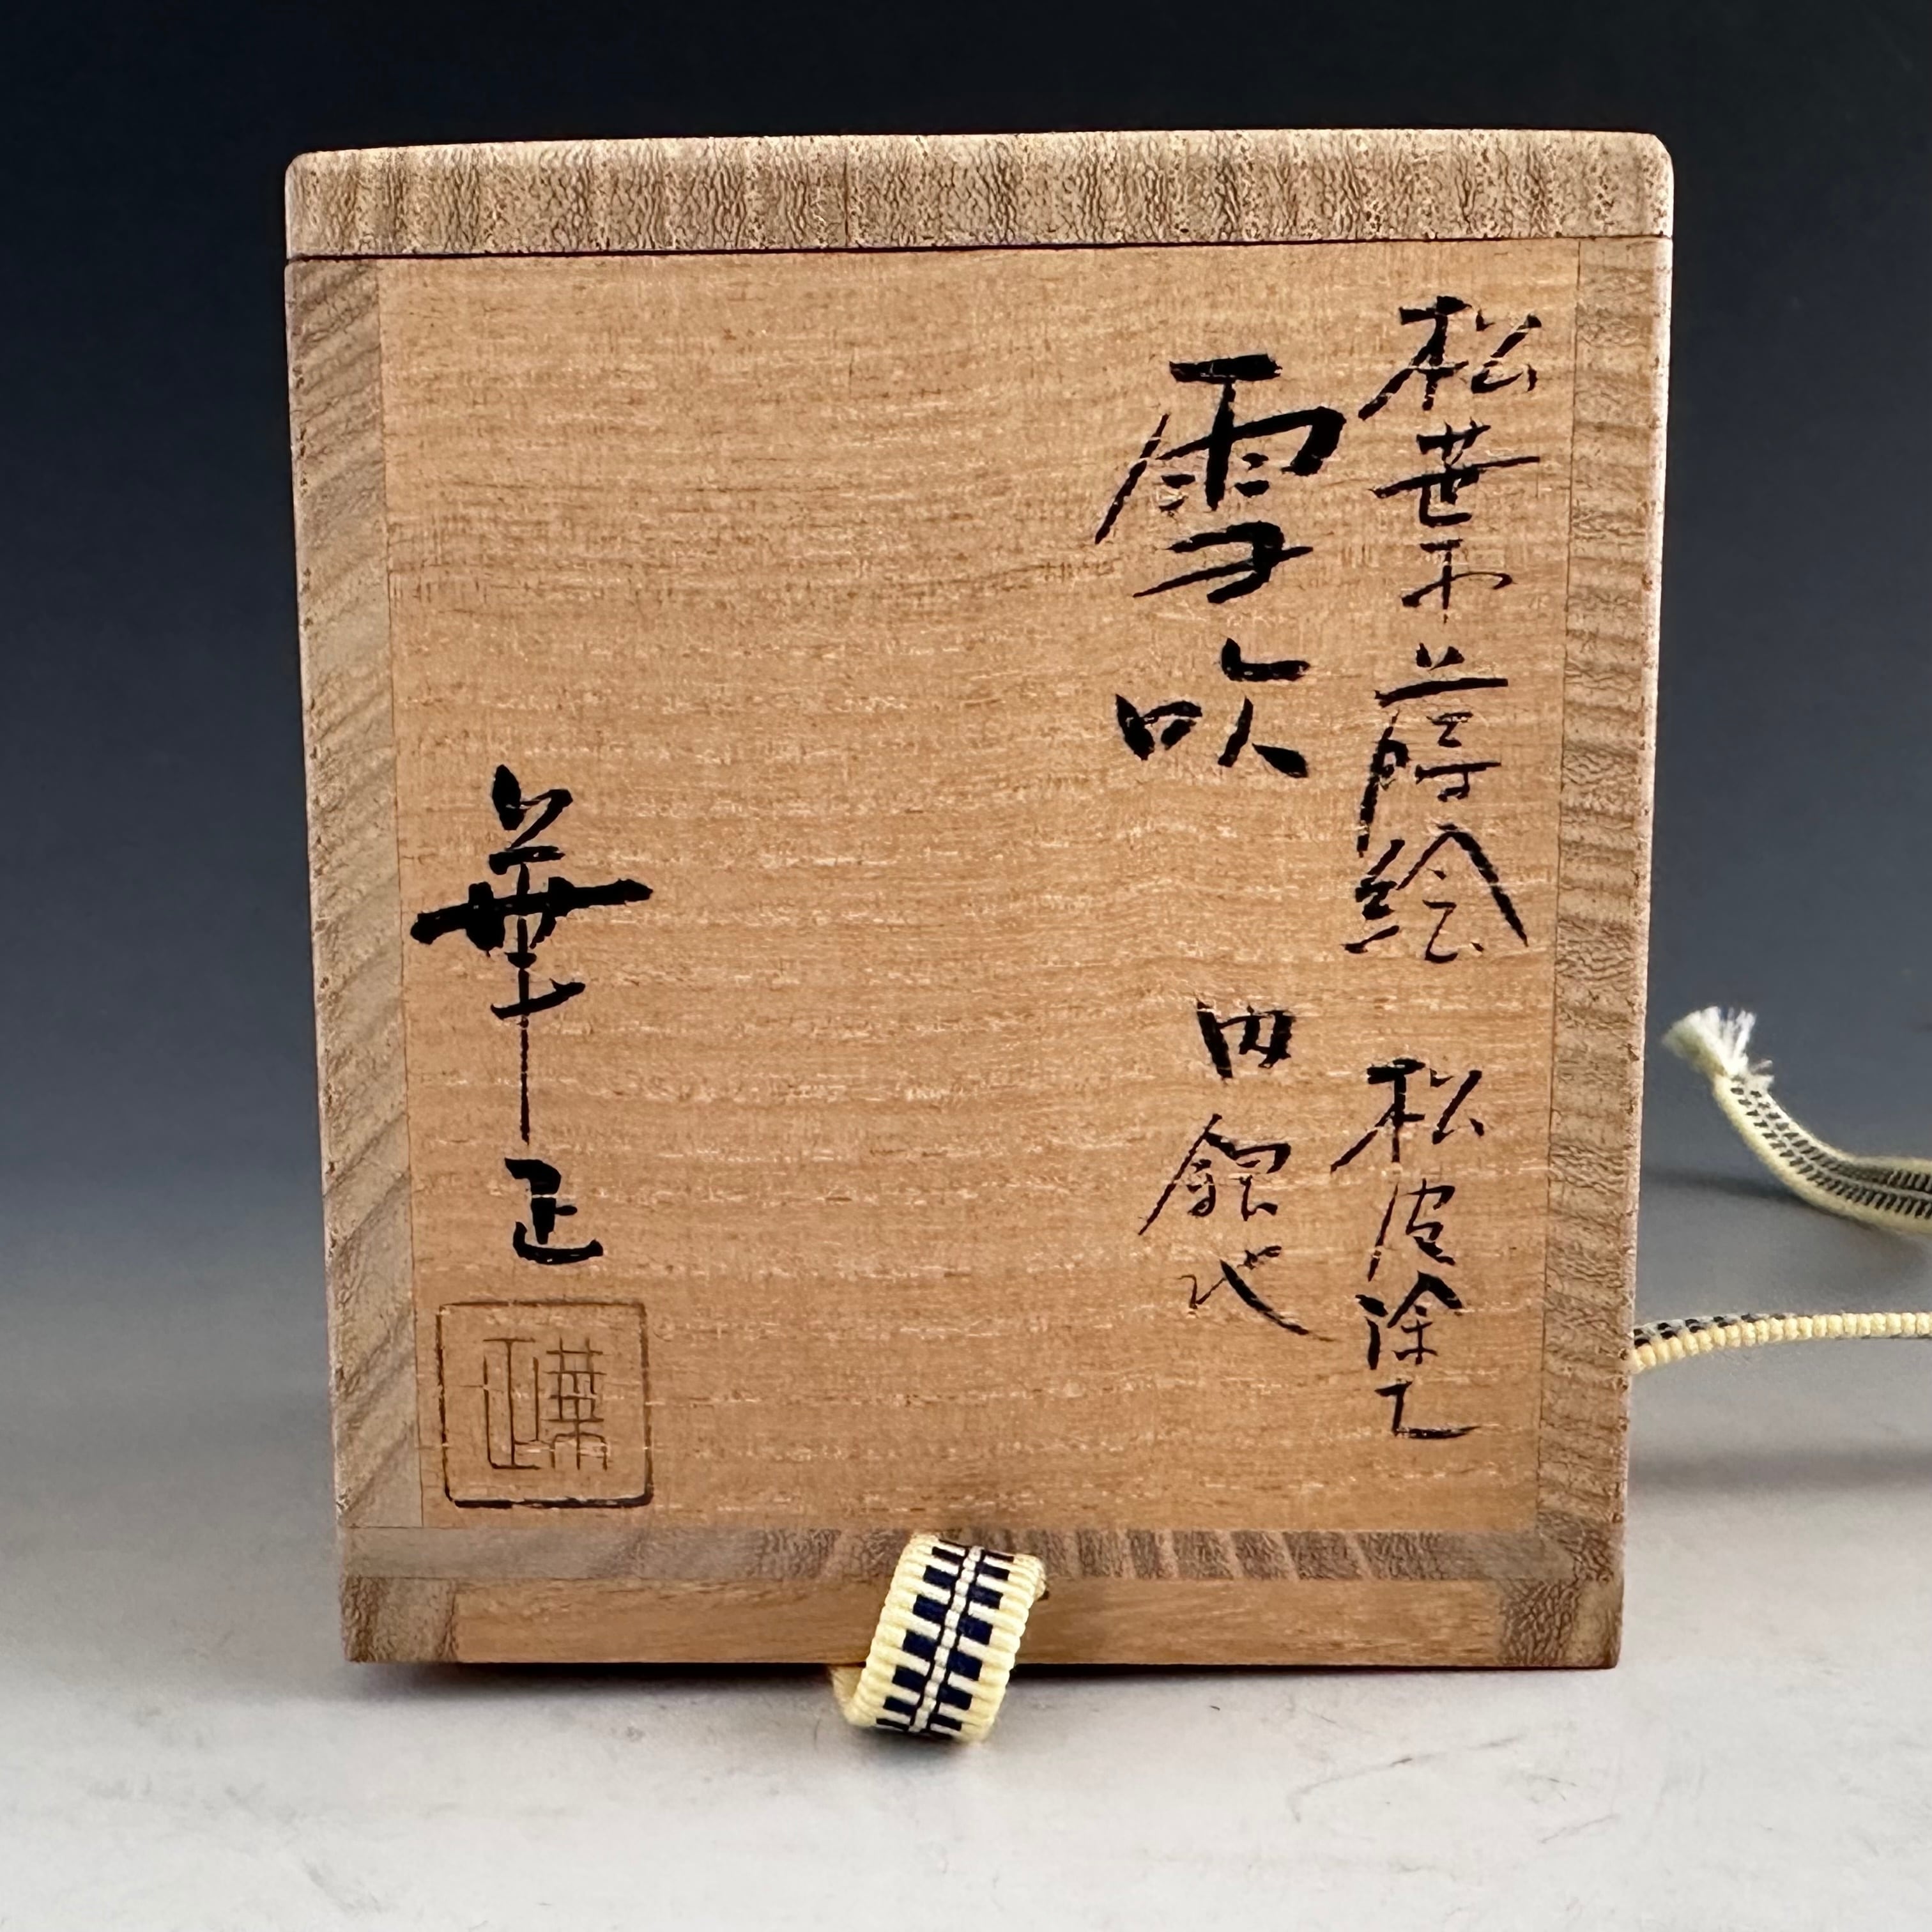 松葉蒔絵 松皮塗
雪吹 内銀地
華正
華正